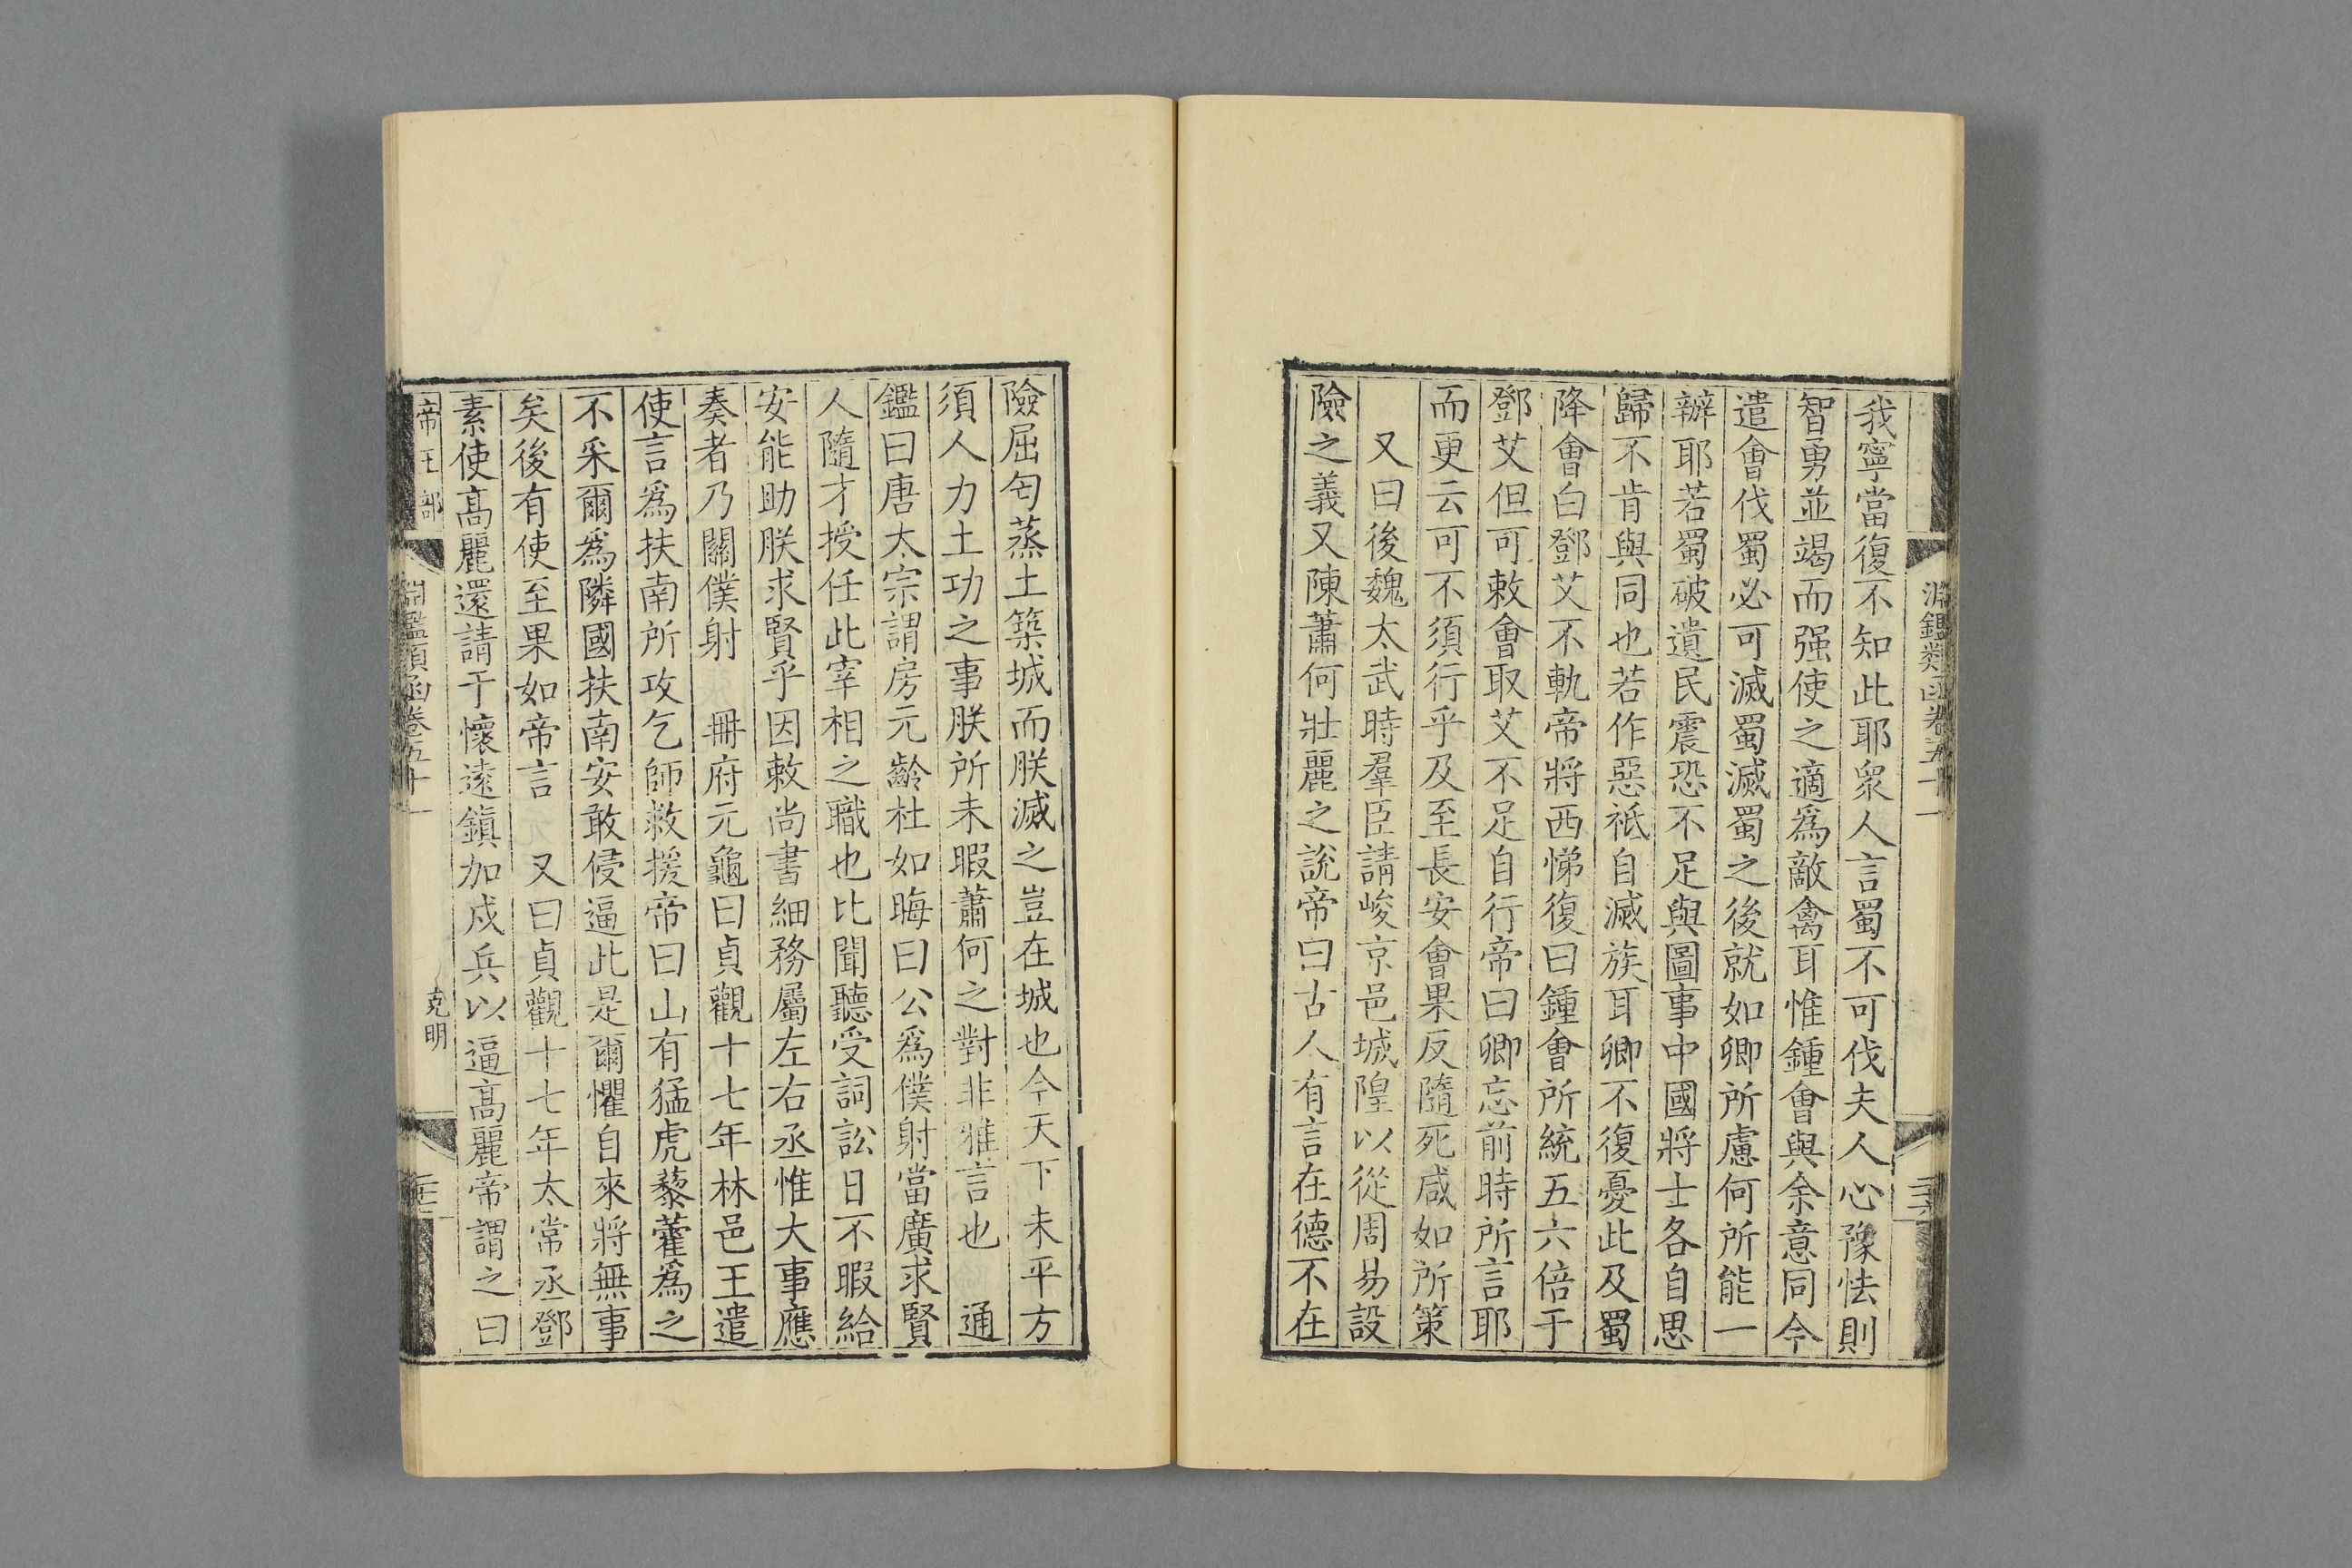 淵鑑類函卷五十一
我寧當復不知此耶衆人言蜀不可伐夫人心豫怯則
智勇並竭而强使之適爲敵禽耳惟鍾會與余意同今
遣會伐蜀必可滅蜀滅蜀之後就如卿所慮何所能一
辦耶若蜀破遺民震恐不足與圖事中國將士各自思
歸不肯與同也若作惡祗自滅族耳卿不復憂此及蜀
降會白鄧艾不軌帝將西悌復曰鍾會所統五六倍于
鄧艾但可敕會取艾不足自行帝曰卿忘前時所言耶
而更云可不須行乎及至長安會果反隨死咸如所策
又曰後魏太武時羣臣請峻京邑城隍以從周易設
險之義又陳蕭何壯麗之說帝曰古人有言在德不在
險屈匄蒸土築城而朕滅之豈在城也今天下未平方
須人力土功之事朕所未暇蕭何之對非雅言也 通
鑑曰唐太宗謂房元齡杜如晦曰公爲僕射當廣求賢
人隨才授任此宰相之職也比聞聽受詞訟日不暇給
安能助朕求賢乎因敕尚書細務屬左右丞惟大事應
奏者乃關僕射 冊府元龜曰貞觀十七年林邑王遣
使言爲扶南所攻乞師救援帝曰山有猛虎藜藿爲之
不采爾爲隣國扶南安敢侵逼此是爾懼自來將無事
矣後有使至果如帝言 又曰貞觀十七年太常丞鄧
素使高麗還請于懷遠鎮加戍兵以逼高麗帝謂之曰
帝王部
淵鑑類函卷五十一
克明